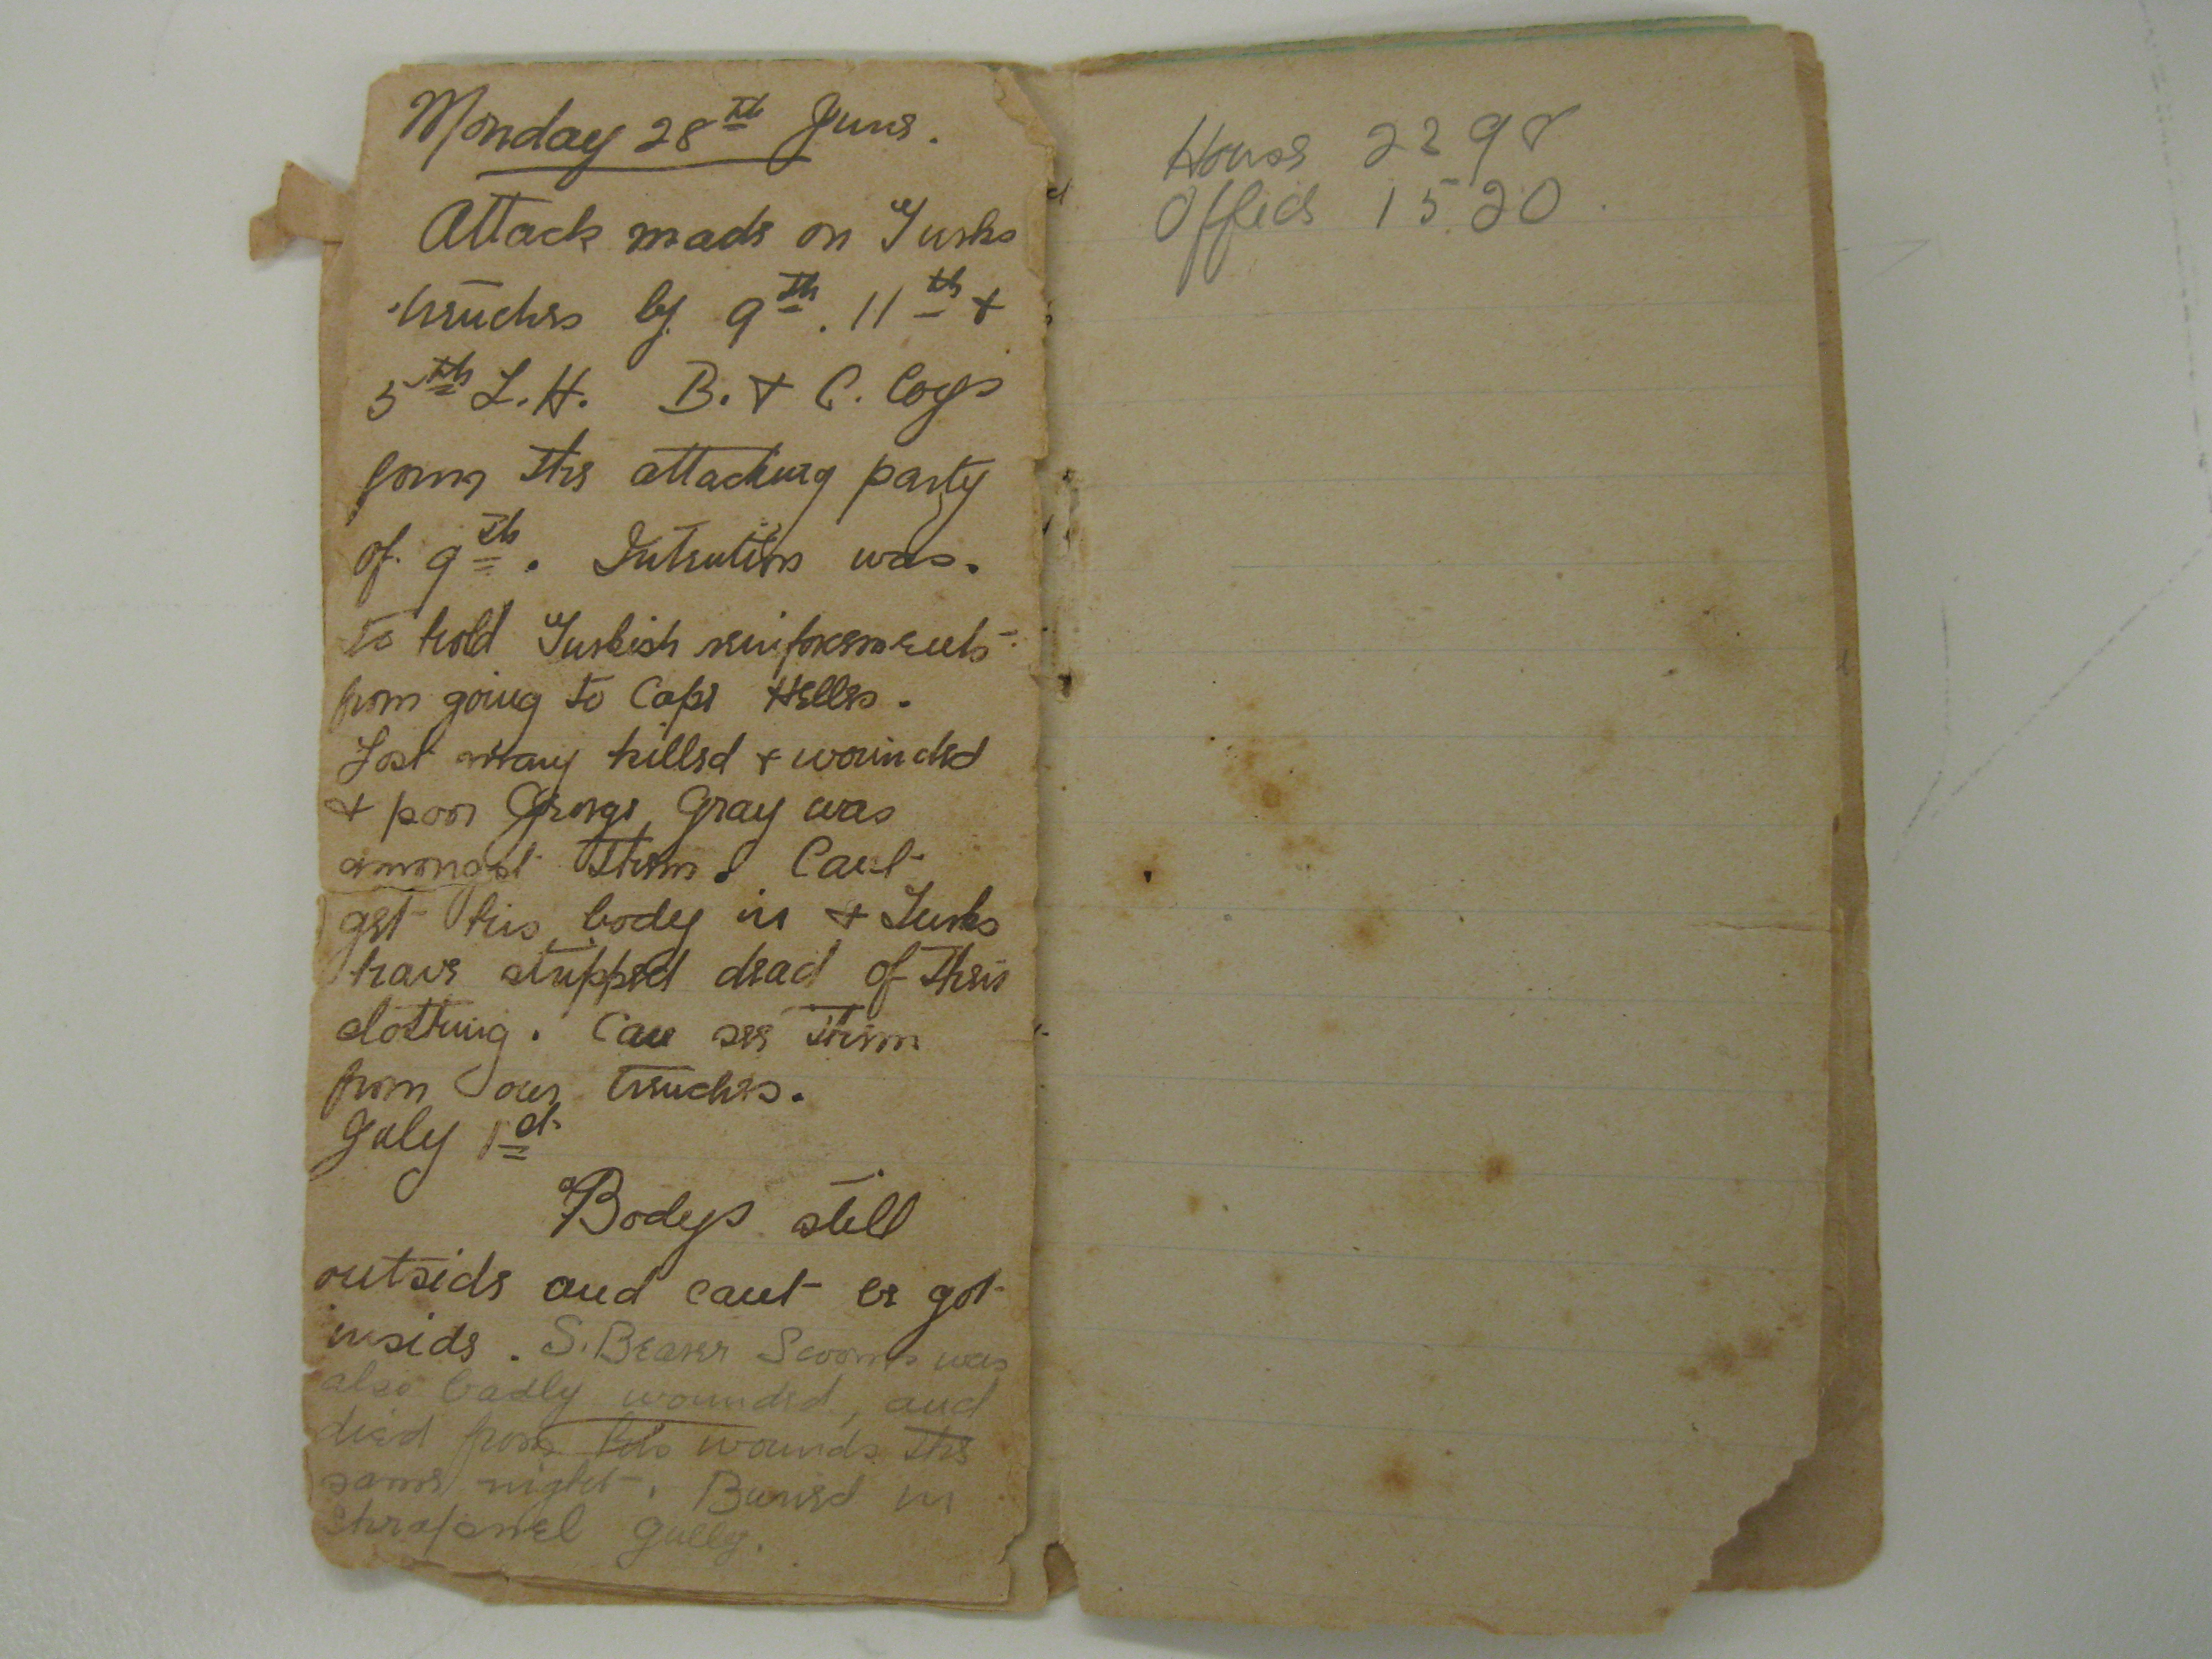 Monday 28th June.
Attack made on Turks
trenches by 9th. 11th +
5th L.H. B. + C. Coys
form the attacking party
of 9th. Intention was.
to hold Turkish reinforsements
from going to Cape Helles.
Lost many killed + wounded
+ poor George Gray was
amongst them. Cant
get his body in + Turks
have stripped dead of their
clothing. Can see them
from our trenches.
July 1st
Bodys still
outside and cant be got
inside. S. Bearer was
also badly wounded, and
died from his wounds the
same night. Buried in
Shrapnel Gully.
House 2298
Office 1520.